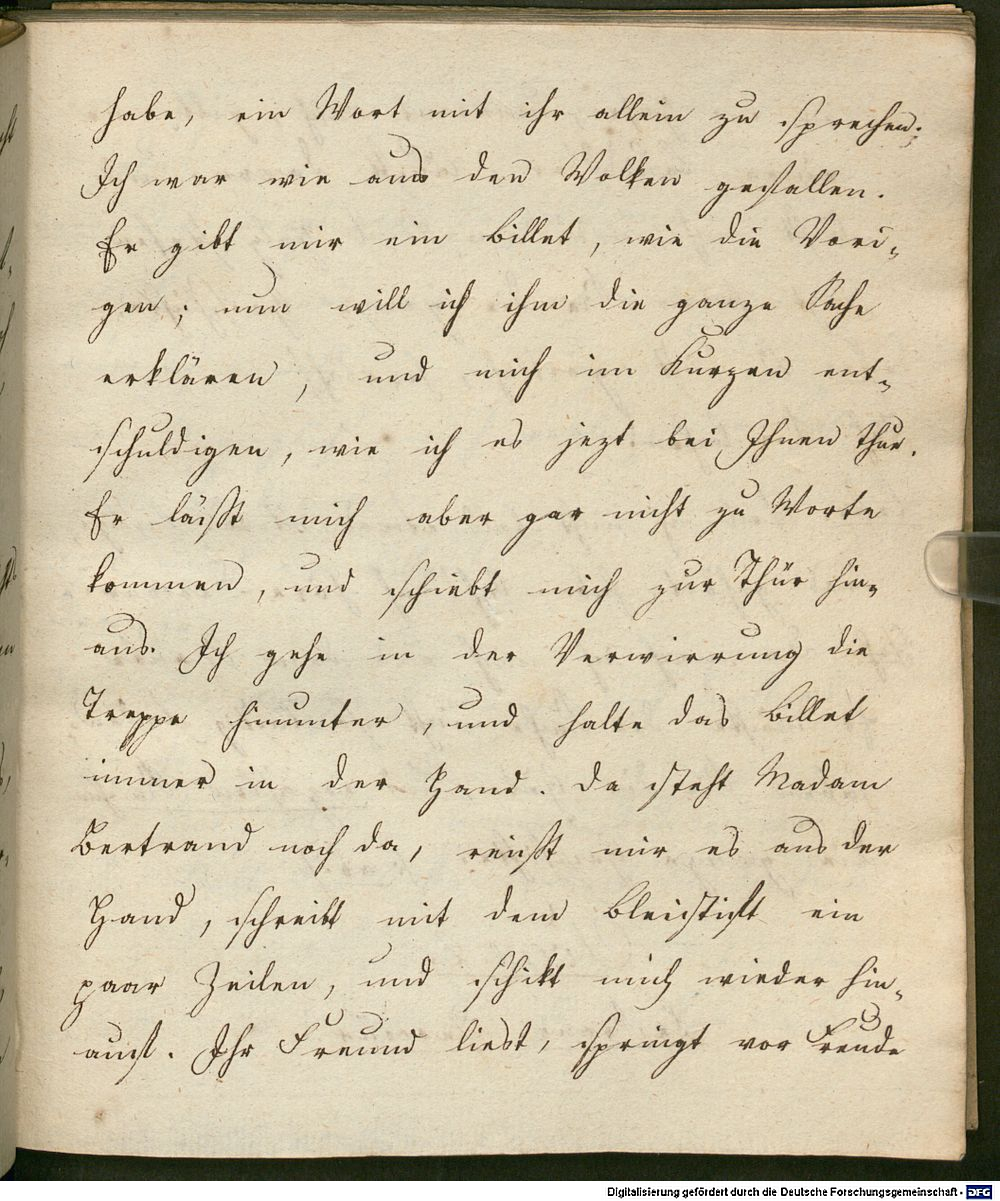 habe, ein Wort mit ihr allein zu sprechen.
Ich war wie aus den Wolken gefallen.
Er gibt mir ein Billet, wie die Vori-
gen; nun will ich ihm die ganze Sache
erklären, und mich im Kurzen ent-
schuldigen, wie ich es jezt bei Ihnen thue.
Er läißt mich aber gar nicht zu Worte
kommen, und schiebt mich zur Thür hin-
aus. Ich gehe in der Verwirrung die
Treppe hinunter, und halte das Billet
immer in der Hand. Da steht Madam
Bertrand noch da, reißt mir es aus der
Hand, schreibt mit dem Bleistift ein
paar Zeilen, und schikt mich wieder hin-
auf. Ihr Freund liest, springt vor Freude
Digitalisierung gefördert durch die Deutsche Forschungsgemeinschaft - DFG